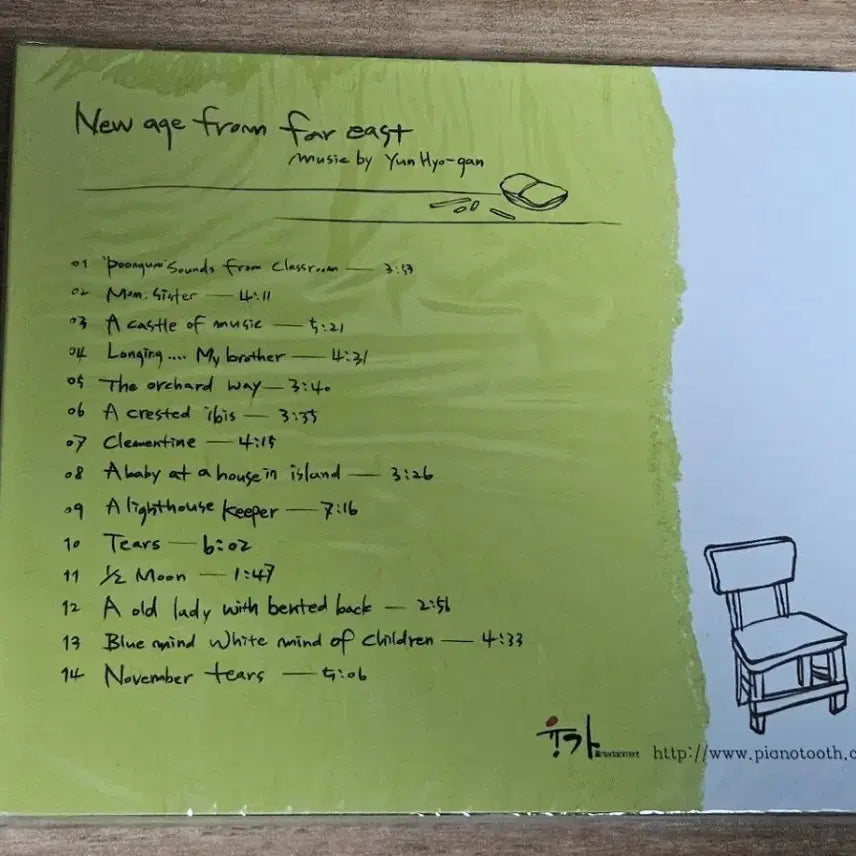 New age from far east
music by Yun Hyo-gan
01 'Poongum' Sounds from classroom — 3:53
02 Mom. Sister — 4:11
03 A castle of music — 5:21
04 Longing.... My brother — 4:31
05 The orchard way — 3:40
06 A crested ibis — 3:35
07 Clementine — 4:15
08 A baby at a house in island — 3:26
09 A lighthouse keeper — 7:16
10 Tears — 6:02
11 1/2 Moon — 1:47
12 A old lady with bented back — 2:56
13 Blue mind White mind of children — 4:33
14 November tears — 5:06
Entertainment
http://www.pianotooth.c